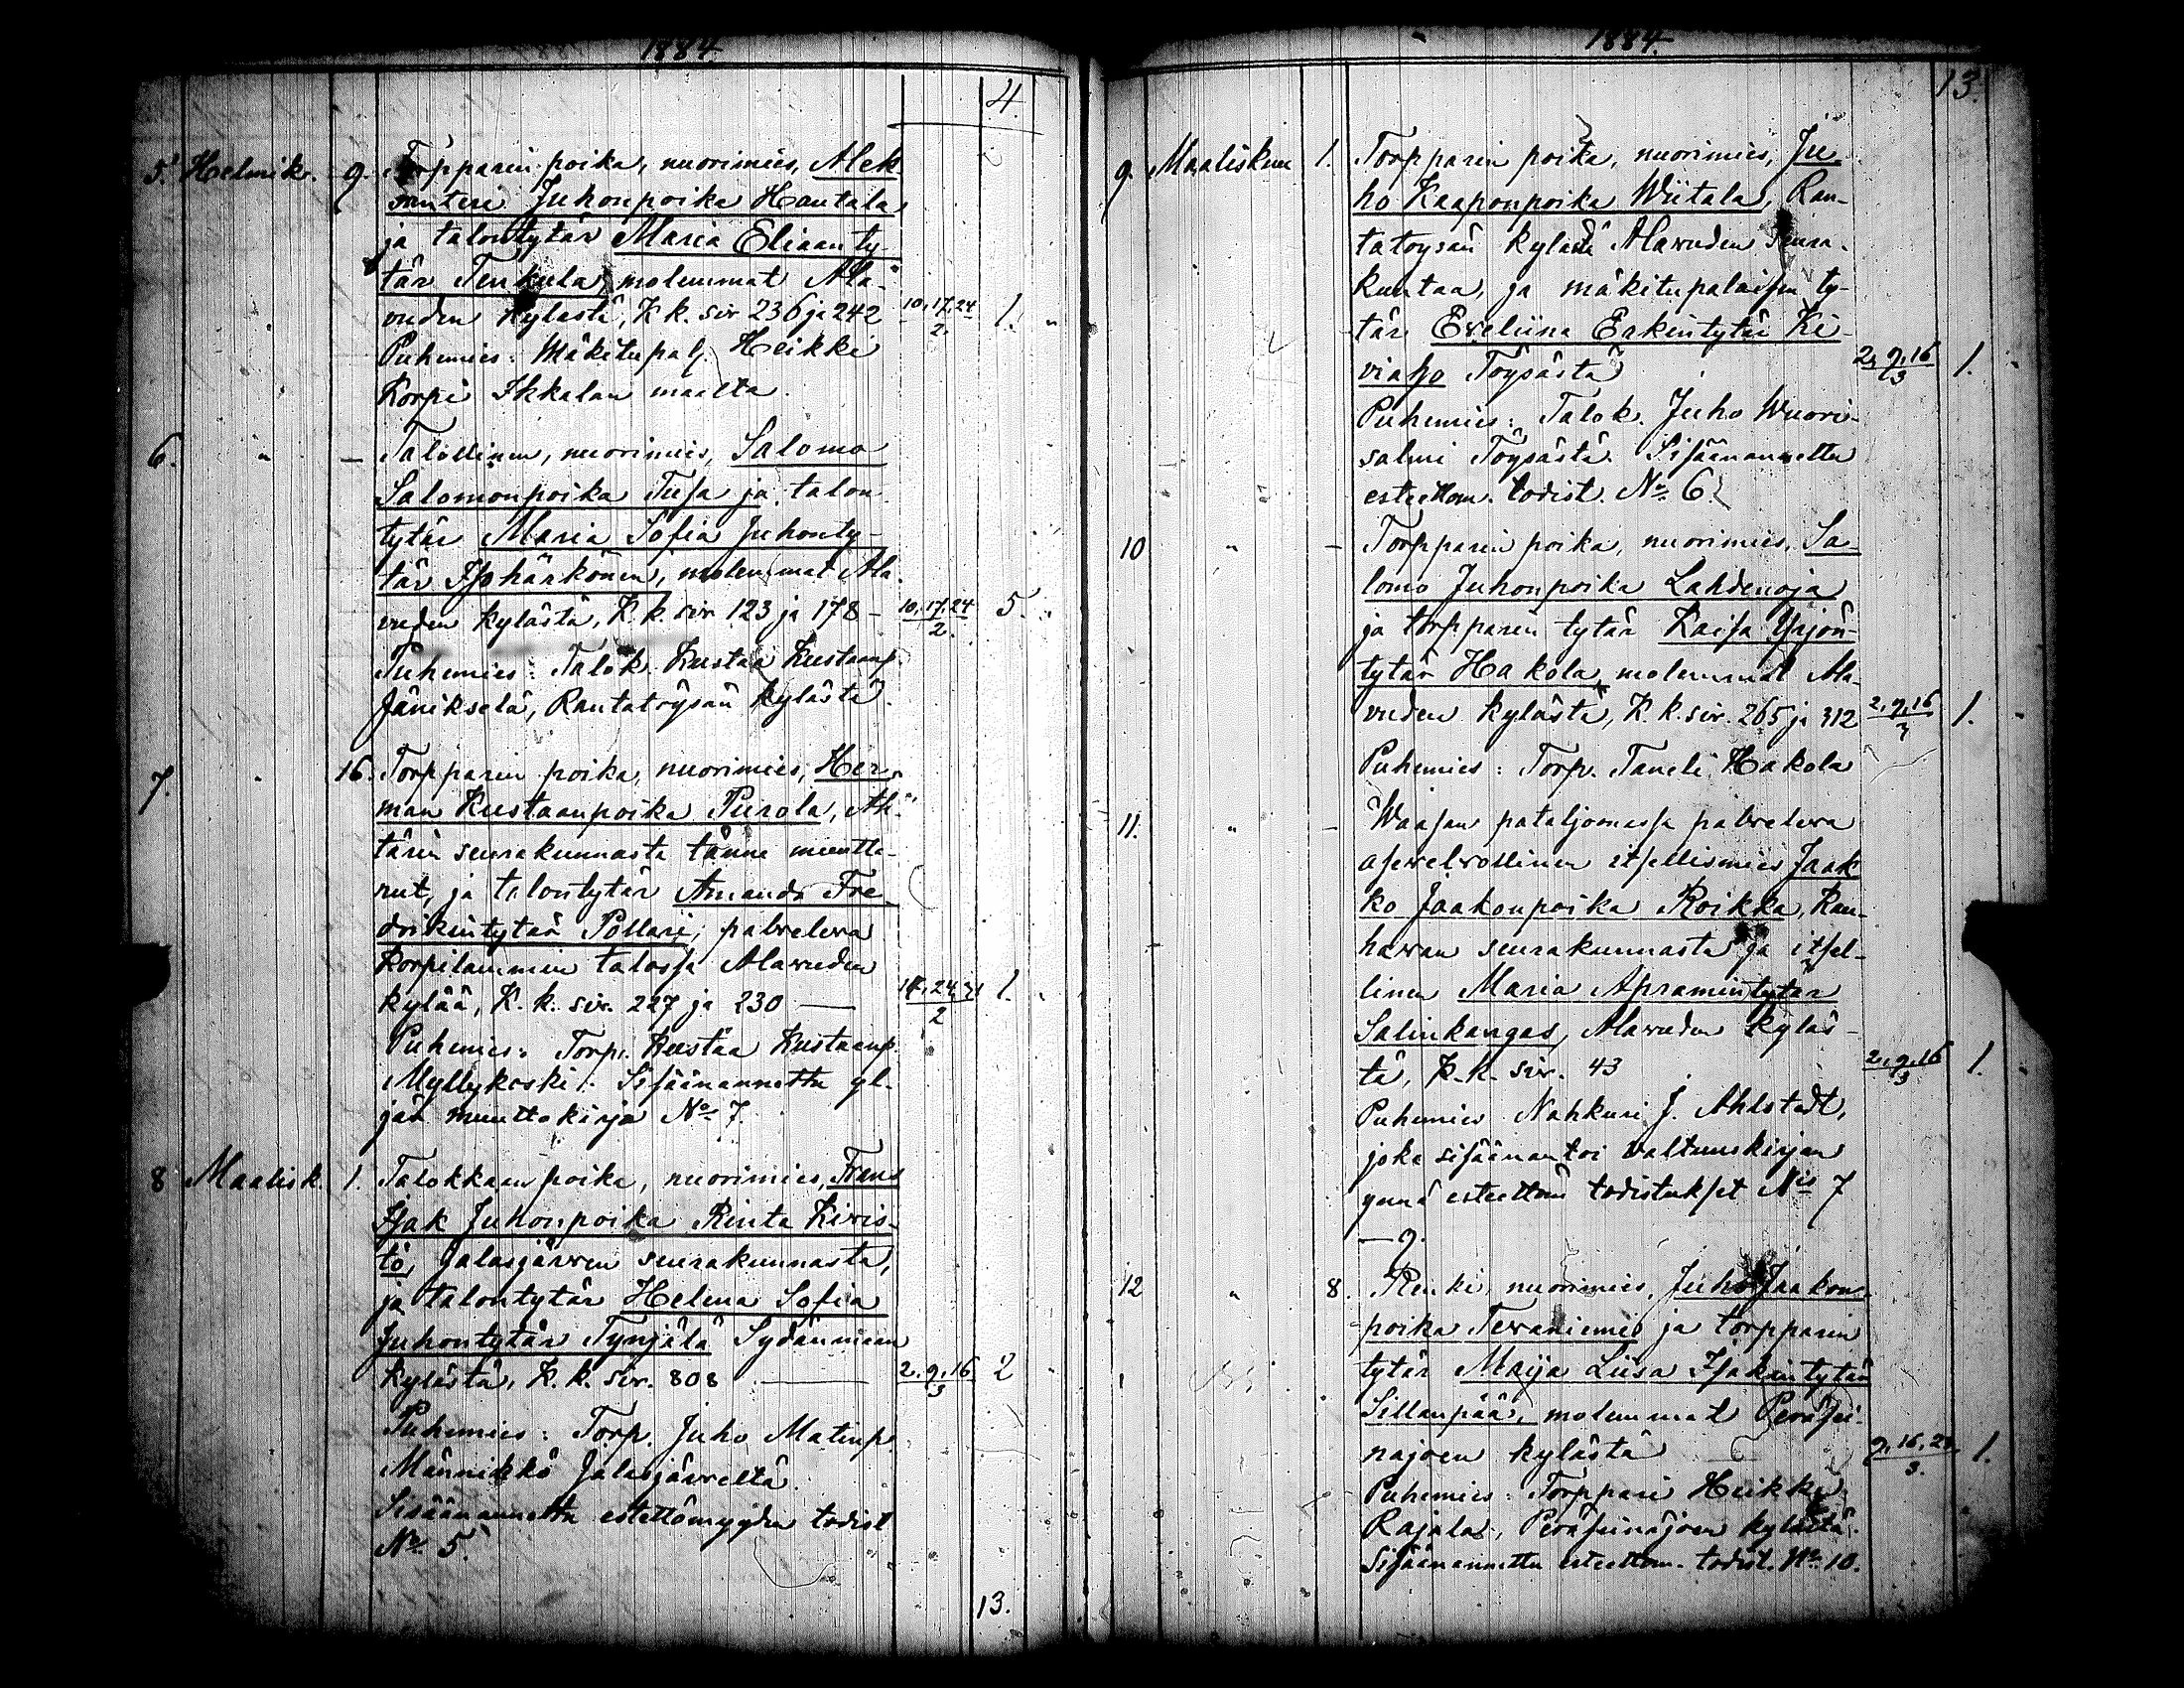 1884.
4.
5. Helmik. 9. Torpparin poika, nuorimies, Alek-
santeri Juhonpoika Hautala
ja talontytär Maria Eliaanty-
tär Tenkula, molemmat Ala-
vuden kylästä, K. k. siv 236 ja 242 10,17,24/2. 1.
Puhemies: Mäkitupal. Heikki
Korpi Ikkalan maalta.
6. " – Talollinen, nuorimies, Salomo
Salomonpoika Tusa ja talon-
tytär Maria Sofia Juhonty-
tär Isohärkönen, molemmat Ala-
vuden kylästä, K. k. siv 123 ja 178 – 10,17,24/2. 5.
Puhemies: Talok. Kustaa Kustaanp.
Jäniksela, Rantatöysän kylästä.
7. " 16. Torpparin poika, nuorimies, Her-
man Kustaanpoika Purola, Äh-
tärin seurakunnasta tänne muutta-
nut, ja talontytär Amanda Fre-
drikintytär Pollari, palveleva
Korpilammin talossa Alavuden
kylää, K. k. siv. 227 ja 230 — 17,24,31/2 1.
Puhemies: Torp. Kustaa Kustaanp.
Myllykoski. Sisäänannettu yl-
jän muuttokirja No 7.
8 Maalisk. 1. Talokkaan poika, nuorimies, Frans
Isak Juhonpoika Rinta Kivis-
tö, Jalasjärven seurakunnasta,
ja talontytär Helena Sofia
Juhontytär Tynjälä Sydänmaan
kylästä, K. k. siv. 808 — 2.9.16/3 2
Puhemies: Torp. Juho Matinp.
Männikkö Jalasjärveltä.
Sisäänannettu estettömyyden todist
No 5.
13.
1884.
13.
9. Maaliskuu 1. Torpparin poika, nuorimies, Ju-
ho Kaaponpoika Wiitala, Ran-
tatöysän kylästä Alavuden seura-
kuntaa, ja mäkitupalaisen ty-
tär Eveliina Erkintytär Ki-
viaho Töysästä 2,9,16/3 1.
Puhemies: Talok. Juho Wuori-
salmi Töysästä. Sisäänannettu
esteettöm. todist. No 6.
10 " – Torpparin poika, nuorimies, Sa-
lomo Juhonpoika Lahdenoja
ja torpparin tytär Kaisa Yrjön-
tytär Hakola, molemmat Ala-
vuden kylästä, K. k. siv. 265 ja 312 2,9,16/3 1.
Puhemies: Torp. Taneli Hakola
11. " – Waasan pataljonassa palveleva
asevelvollinen itsellismies Jaak-
ko Jaakonpoika Roikka, Kau-
havan seurakunnasta ja itsel-
linen Maria Apramintytär
Salinkangas, Alavuden kyläs-
tä, K. k. siv. 43 2,9,16/3 1.
Puhemies Nahkuri J. Ahlstedt,
joka sisäänantoi valtuuskirjan
ynnä esteettöm. todistukset Nis 7
– 9.
12 " 8. Renki, nuorimies, Juho Jaakon-
poika Tevaniemi ja torpparin
tytär Maija Liisa Isakintytär
Sillanpää, molemmat Peräsei-
näjoen kylästä 9,16,23/3. 1.
Puhemies: Torppari Heikki
Rajala, Peräseinäjoen kylästä.
Sisäänannettu esteettöm. todist. No 10.